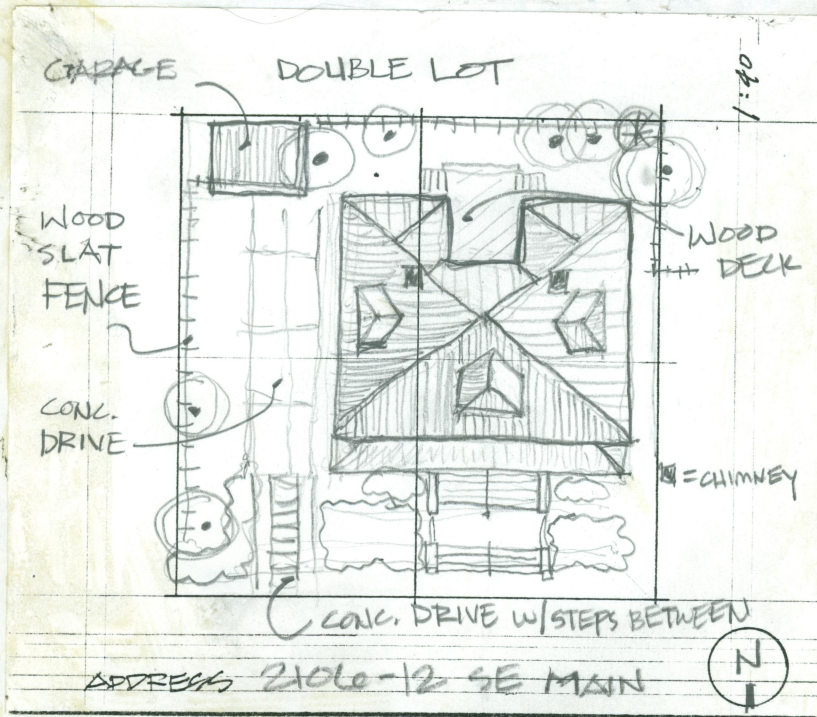 GARAGE
DOUBLE LOT
1:40
WOOD
SLAT
FENCE
WOOD
DECK
CONC.
DRIVE
= CHIMNEY
CONC. DRIVE W/STEPS BETWEEN
ADDRESS 2106-12 SE MAIN
N